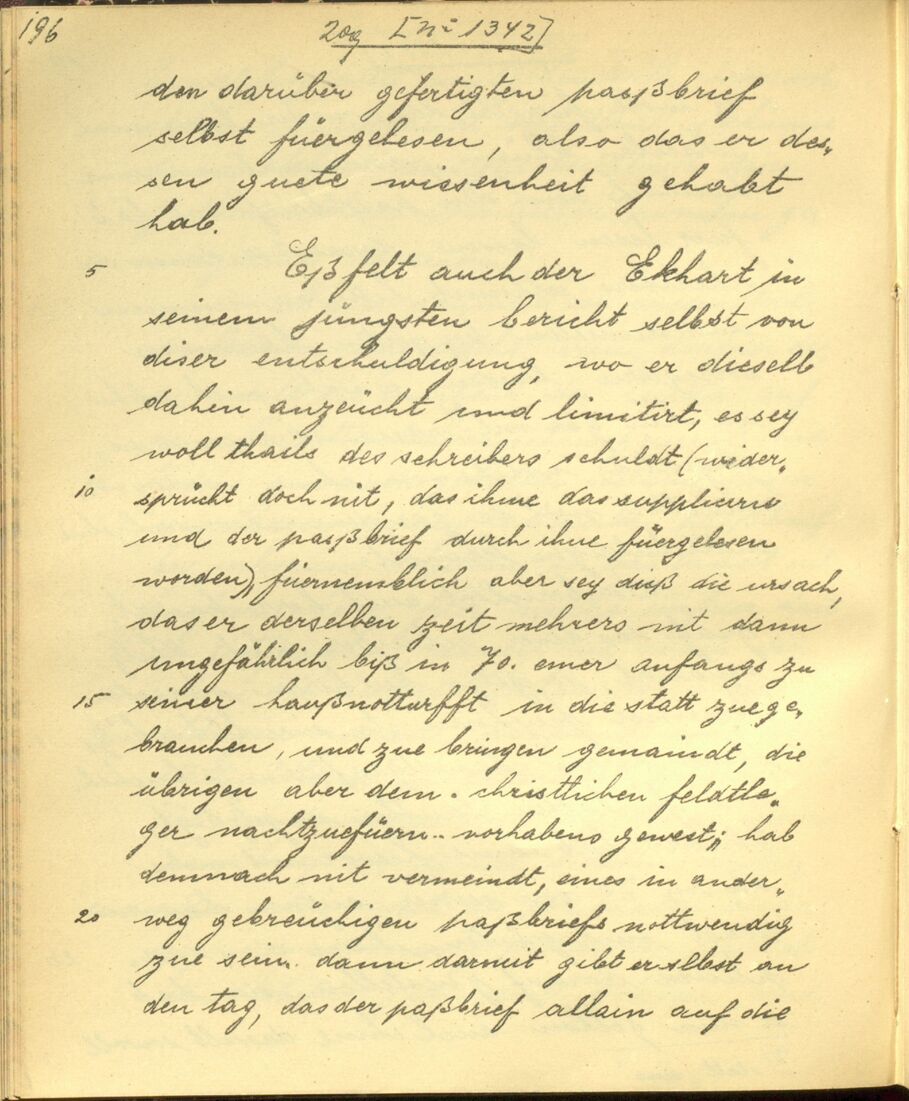 196
209 [No 1342]
den darüber gefertigten paaßbrief
selbst füergelesen, also das er des„
sen guete wissenheit gehabt
hab.
5 Eß felt auch der Ekhart in
seinem jüngsten bericht selbst von
diser entschuldigung, wo er dieselb
dahin anzeücht und limitirt, es sey
woll thails des schreibers schuldt (wider„
10 sprücht doch nit, das ihme das supplicirn
und der paaßbrief durch ihne füergelesen
worden), füernemblich aber sey diß die ursach,
das er derselben zeit mehrers nit dann
ungefährlich biß in 70. emer anfangs zu
15 seiner haußnotturfft in die statt zue ge„
brauchen, und zue bringen gemaindt, die
übrigen aber dem christlichen feldtle„
ger nachtzuefüern vorhabens gewest; hab
demnach nit vermeindt, eines in ander„
20 weg gebreüchigen paßbriefs nottwendig
zue sein. dann darmit gibt er selbst an
den tag, das der paßbrief allain auf die